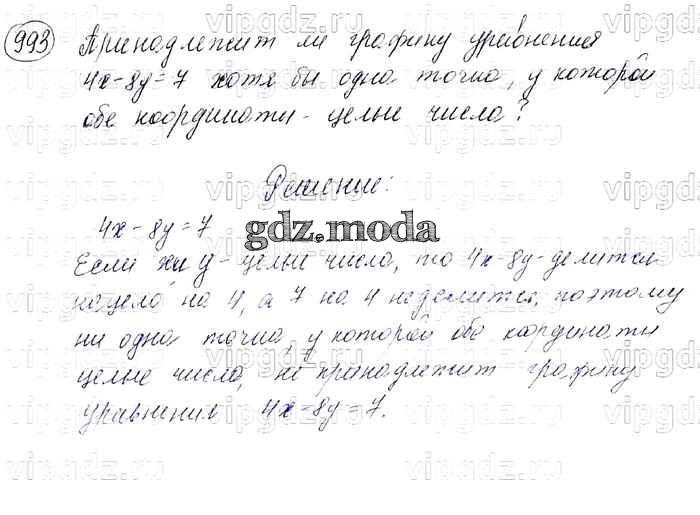 993 Принадлежит ли графику уравнения
4x-8y=7 хотя бы одна точка, у которой
обе координаты - целые числа?
Решение:
4x-8y=7
gdz.moda
Если x и y - целые числа, то 4x-8y-делится
нацело на 4, а 7 на 4 не делится, поэтому
ни одна точка, у которой обе координаты
целые числа, не принадлежит графику
уравнения 4x-8y=7.
vipgdz.ru